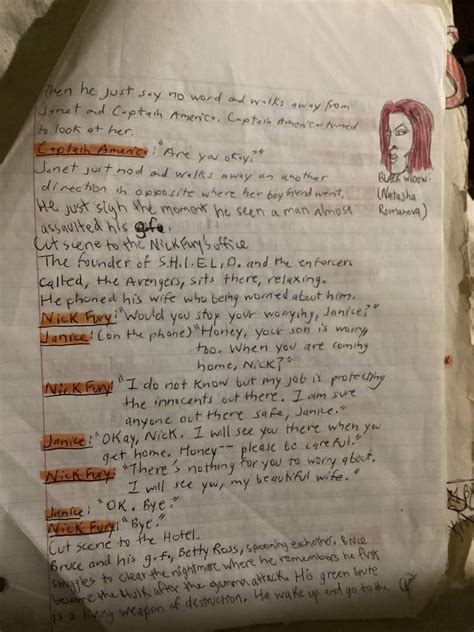 Then he just say no word and walks away from
Janet and Captain America. Captain America turned
to look at her.
Captain America: "Are you okay?"
Janet just nod and walks away an another
direction in opposite where her boyfriend went.
He just sigh the moment he seen a man almost
assaulted his gfe.
Cut scene to the Nick Fury's office
The founder of S.H.I.E.L.D. and the enforcers
called, the Avengers, sits there, relaxing.
He phoned his wife who being worried about him.
Nick Fury: "Would you stop your worrying, Janice?"
Janice: (on the phone) "Honey, your son is worry
too. When you are coming
home, Nick?"
Nick Fury: "I do not know but my job is protecting
the innocents out there. I am sure
anyone out there safe, Janice."
Janice: "Okay, Nick. I will see you there when you
get home. Honey-- please be careful."
Nick Fury: "There's nothing for you to worry about.
I will see you, my beautiful wife."
Janice: "OK. Bye."
Nick Fury: "Bye."
Cut scene to the Hotel.
Bruce and his g.f., Betty Ross, spooning eachother. Bruce
struggles to clear the nightmare where he remembers he first
became the Hulk after the gamma attack. His green brute
is a living weapon of destruction. He wake up and go to the
Black Widow.
(Natasha
Romanova)